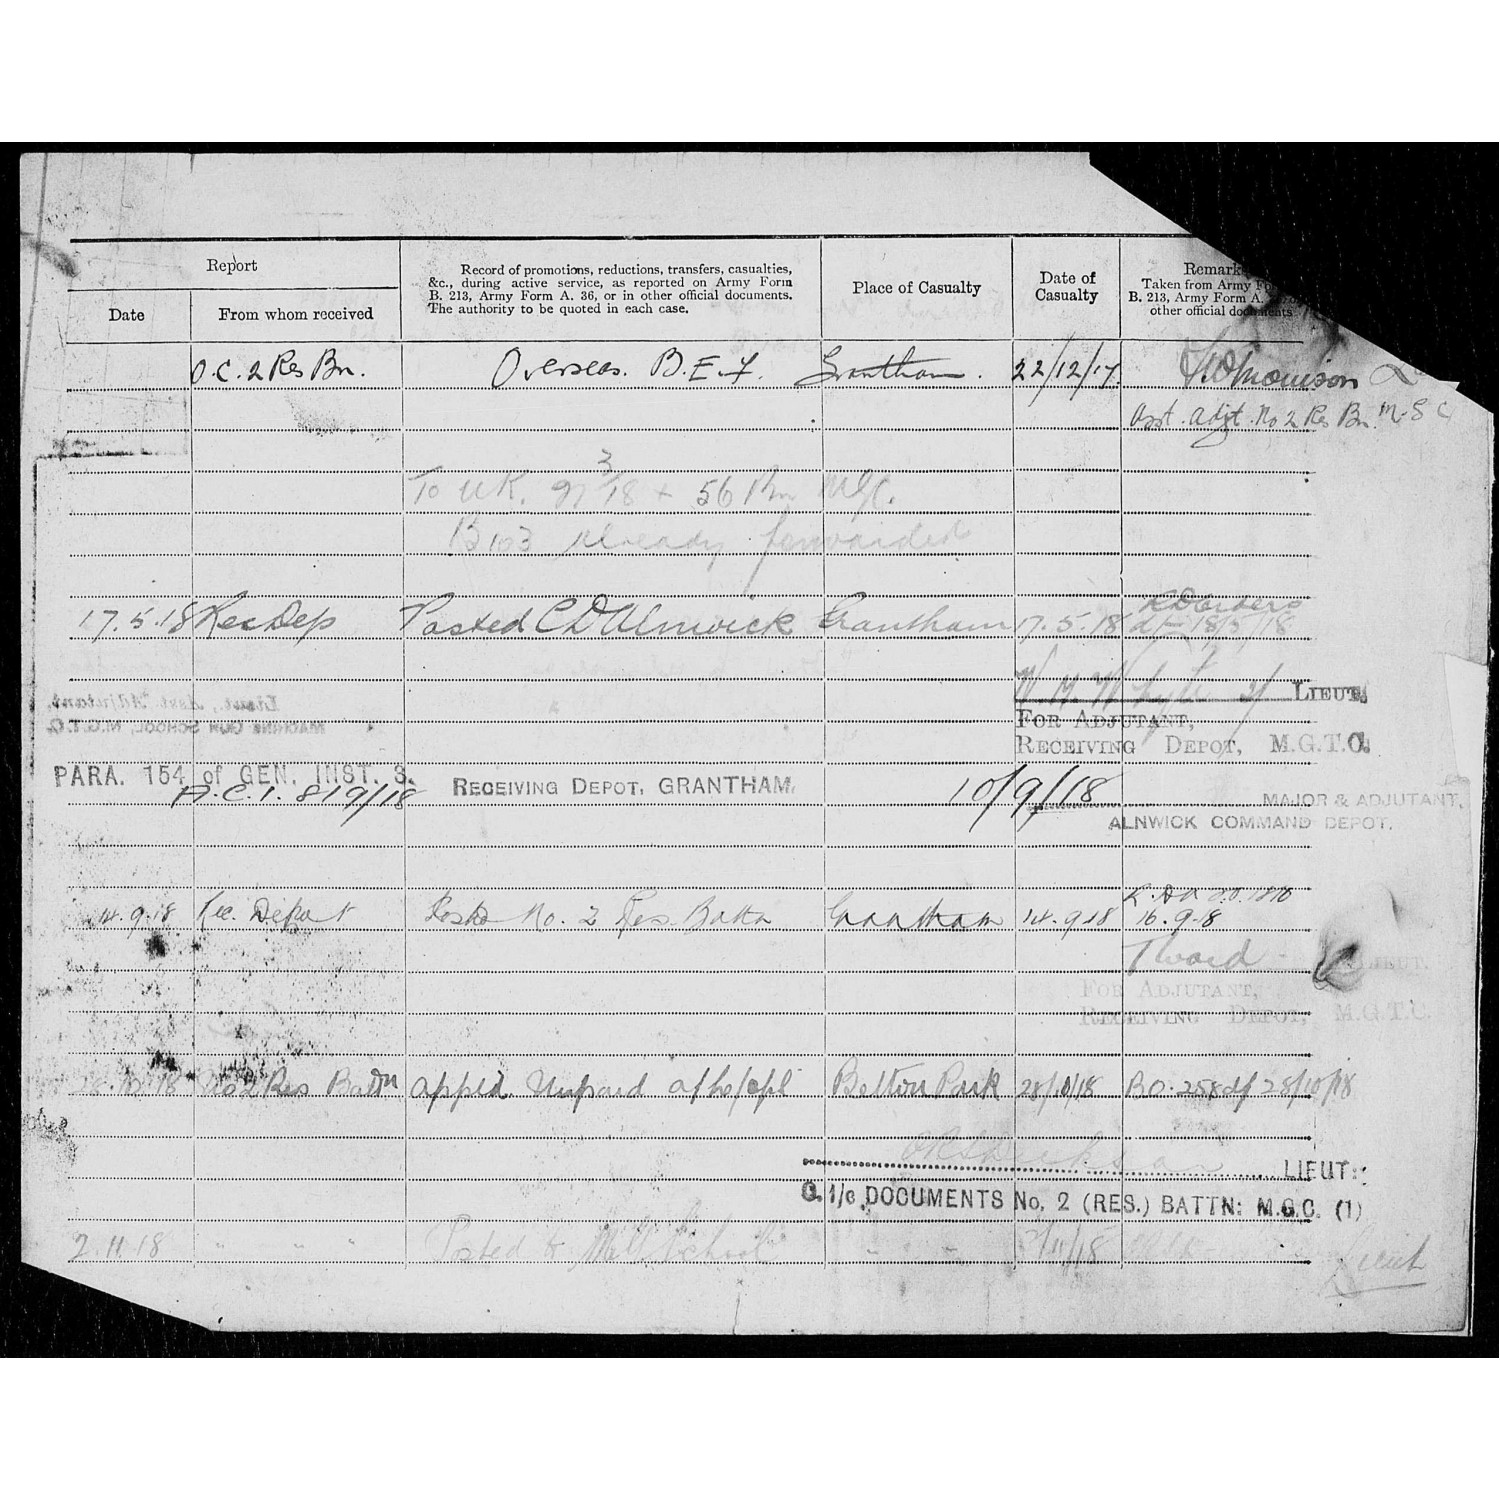 Report
Date
From whom received
Record of promotions, reductions, transfers, casualties,
&c., during active service, as reported on Army Form
B. 213, Army Form A. 36, or in other official documents.
The authority to be quoted in each case.
Place of Casualty
Date of
Casualty
Remark
Taken from Army Fo
B. 213, Army Form A.
other official documents
O.C. 2 Res Bn. Overseas. B.E.F. Grantham. 22/12/17
Asst. Adjt. No 2 Res Bn. M.G.C
To UK. 9/3/18 56 Bn MGC.
B103 already forwarded
17.5.18 Rec Dep Posted C D Alnwick Grantham 17.5.18 R D orders
d/- 18/5/18
LIEUT.
FOR ADJUTANT,
RECEIVING DEPOT, M.G.T.C.
Lieut., Asst. Adjutant.
MACHINE GUN SCHOOL, M.G.T.C.
PARA. 154 of GEN. INST. 3.
A.C.I. 819/18 RECEIVING DEPOT, GRANTHAM. 10/9/18
MAJOR & ADJUTANT,
ALNWICK COMMAND DEPOT.
14.9.18 Rec. Depot Posted No. 2 Res. Battn Grantham 14.9.18
16.9.18
T Ward LIEUT.
FOR ADJUTANT,
RECEIVING DEPOT, M.G.T.C.
28.10.18 No 2 Res Battn appld. Unpaid a/L/cpl Belton Park 28/10/18 BO. 258 d/ 28/10/18
LIEUT:
O. i/c DOCUMENTS No. 2 (RES.) BATTN: M.G.C. (1)
2.11.18 " " " Posted to School " " 2/11/18 Lieut